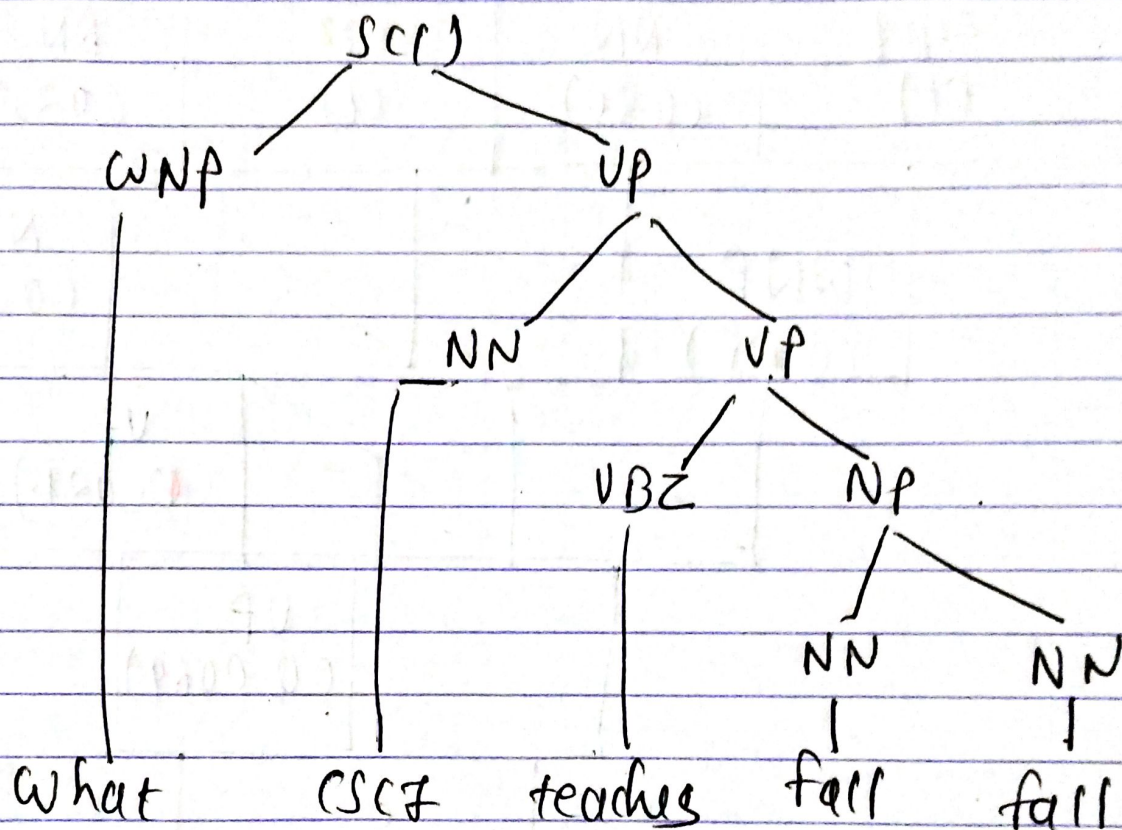 SC()
WNP VP
NN VP
VBZ NP
NN NN
what CSCI teaches fall fall